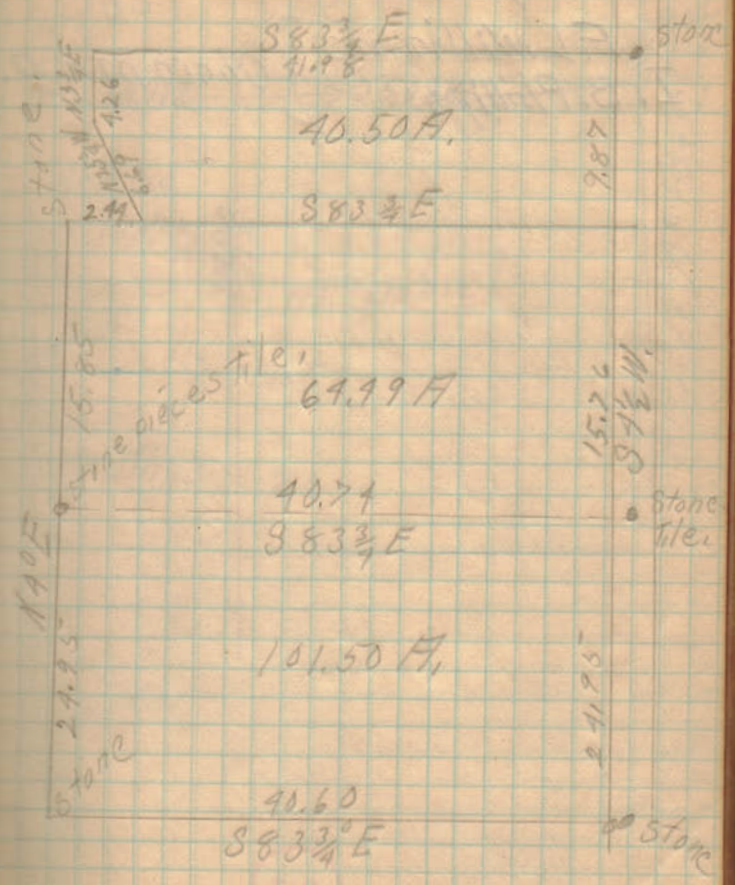 S 83 3/4 E
41.98
Stone
N 3 3/4 E
4.26
Stone.
6.49
2.44
46.50 A.
9.87
S 83 3/4 E
15.85
Stone pieces tile.
64.49 A
15.76
S 4 1/2 W.
40.74
S 83 3/4 E
Stone
Tile.
N 4° E
24.95
101.50 A.
24.95
Stone
40.60
S 83 3/4° E
Stone